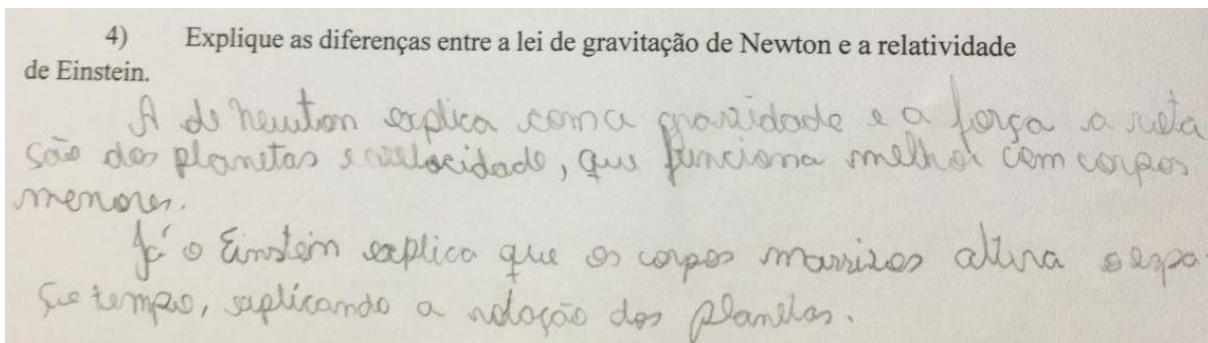 4) Explique as diferenças entre a lei de gravitação de Newton e a relatividade
de Einstein.
A de Neuton explica com a gravidade e a força a rota
ção dos planetas e velocidade, que funciona melhor com corpos
menores.
Já o Einstein explica que os corpos massivos altera o espa
ço tempo, explicando a rotação dos planetas.